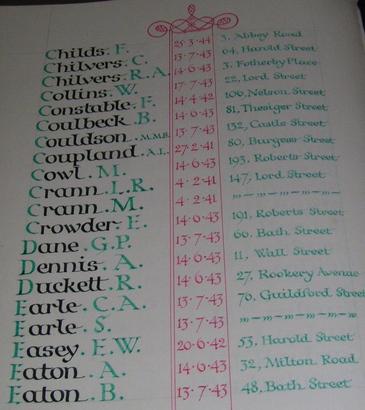 Childs. F. 25·3·44 3, Abbey Road
Chilvers. C. 13·7·43 64, Harold Street
Chilvers. R.A. 14·6·43 3, Fotherby Place
Collins. W. 17·7·43 22, Lord Street
Constable. F. 14·4·42 106, Nelson Street
Coulbeck. B. 14·6·43 81, Thesiger Street
Couldson. M.M.B. 13·7·43 132, Castle Street
Coupland. A.L. 27·2·41 80, Burgess Street
Cowl. M. 14·6·43 193, Roberts Street
Crann. L.R. 4·2·41 147, Lord Street
Crann. M. 4·2·41
Crowder. E. 14·6·43 191, Roberts Street
Dane. G.P. 13·7·43 60, Bath Street
Dennis. A. 14·6·43 11, Wall Street
Duckett. R. 14·6·43 27, Rookery Avenue
Earle. C.A. 13·7·43 70, Guildford Street
Earle. S. 13·7·43
Easey. E.W. 20·6·42 53, Harold Street
Eaton. A. 14·6·43 32, Milton Road
Eaton. B. 13·7·43 48, Bath Street